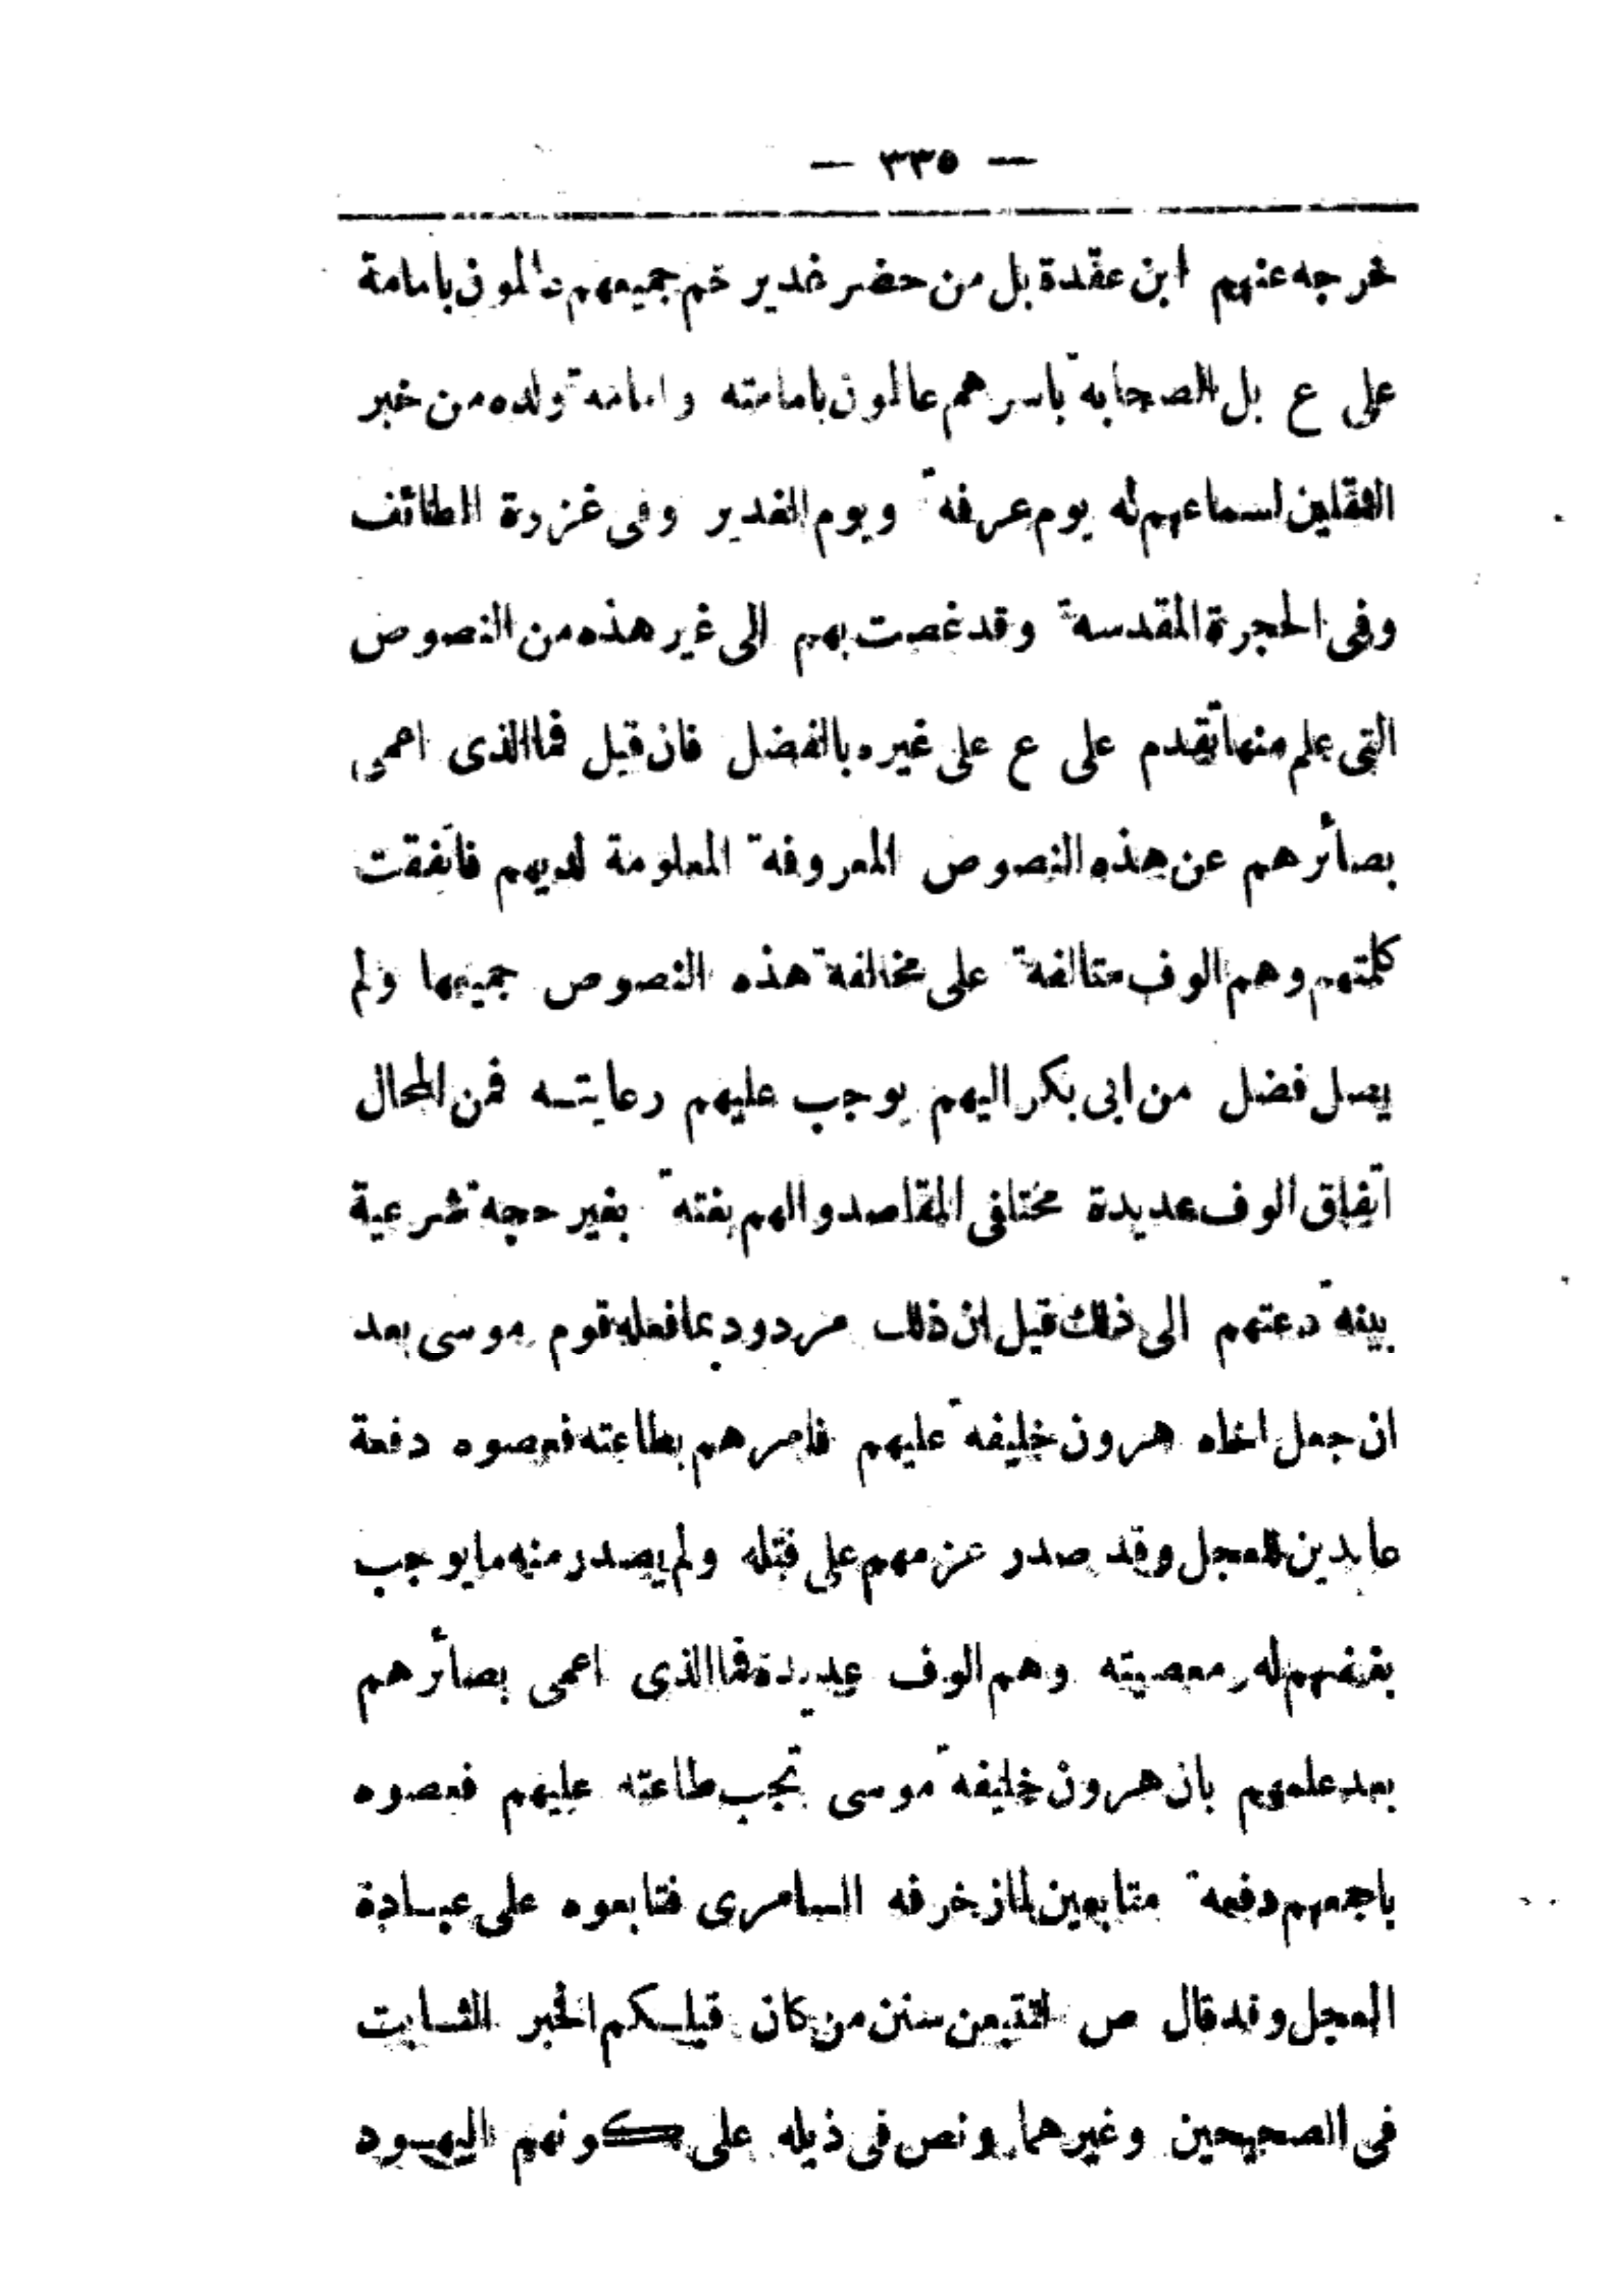 — ٣٣٥ —
خرجه عنهم ابن عقدة بل من حضر غدير خم جميعهم عالمون بامامة
على ع بل الصحابة باسرهم عالمون بامامته وامامة ولده من خبر
الثقلين لسماعهم له يوم عرفة ويوم الغدير وفى غزوة الطائف
وفى الحجرة المقدسة وقد غصت بهم الى غير هذه من النصوص
التى علم منها تقدم على ع على غيره بالفضل فان قيل فما الذى اعمى
بصائرهم عن هذه النصوص المعروفة المعلومة لديهم فاتفقت
كلمتهم وهم الوف متالفة على مخالفة هذه النصوص جميعها ولم
يصل فضل من ابى بكر اليهم يوجب عليهم رعايته فمن المحال
اتفاق الوف عديدة مختلفى المقاصد والهم بغتة بغير حجة شرعية
بينة دعتهم الى ذلك قيل ان ذلك مردود بما فعله قوم موسى بعد
ان جعل اخاه هرون خليفة عليهم فامرهم بطاعته فعصوه دفعة
عابدين للعجل وقد صدر عزمهم على قتله ولم يصدر منه ما يوجب
بغضهم له ومعصيته وهم الوف عديدة فما الذى اعمى بصائرهم
بعد علمهم بان هرون خليفة موسى تجب طاعته عليهم فعصوه
باجمعهم دفعة متابعين لما زخرفه السامرى فتابعوه على عبادة
العجل وقد قال ص لتتبعن سنن من كان قبلكم الخبر الثابت
فى الصحيحين وغيرهما ونص فى ذيله على كونهم اليهود